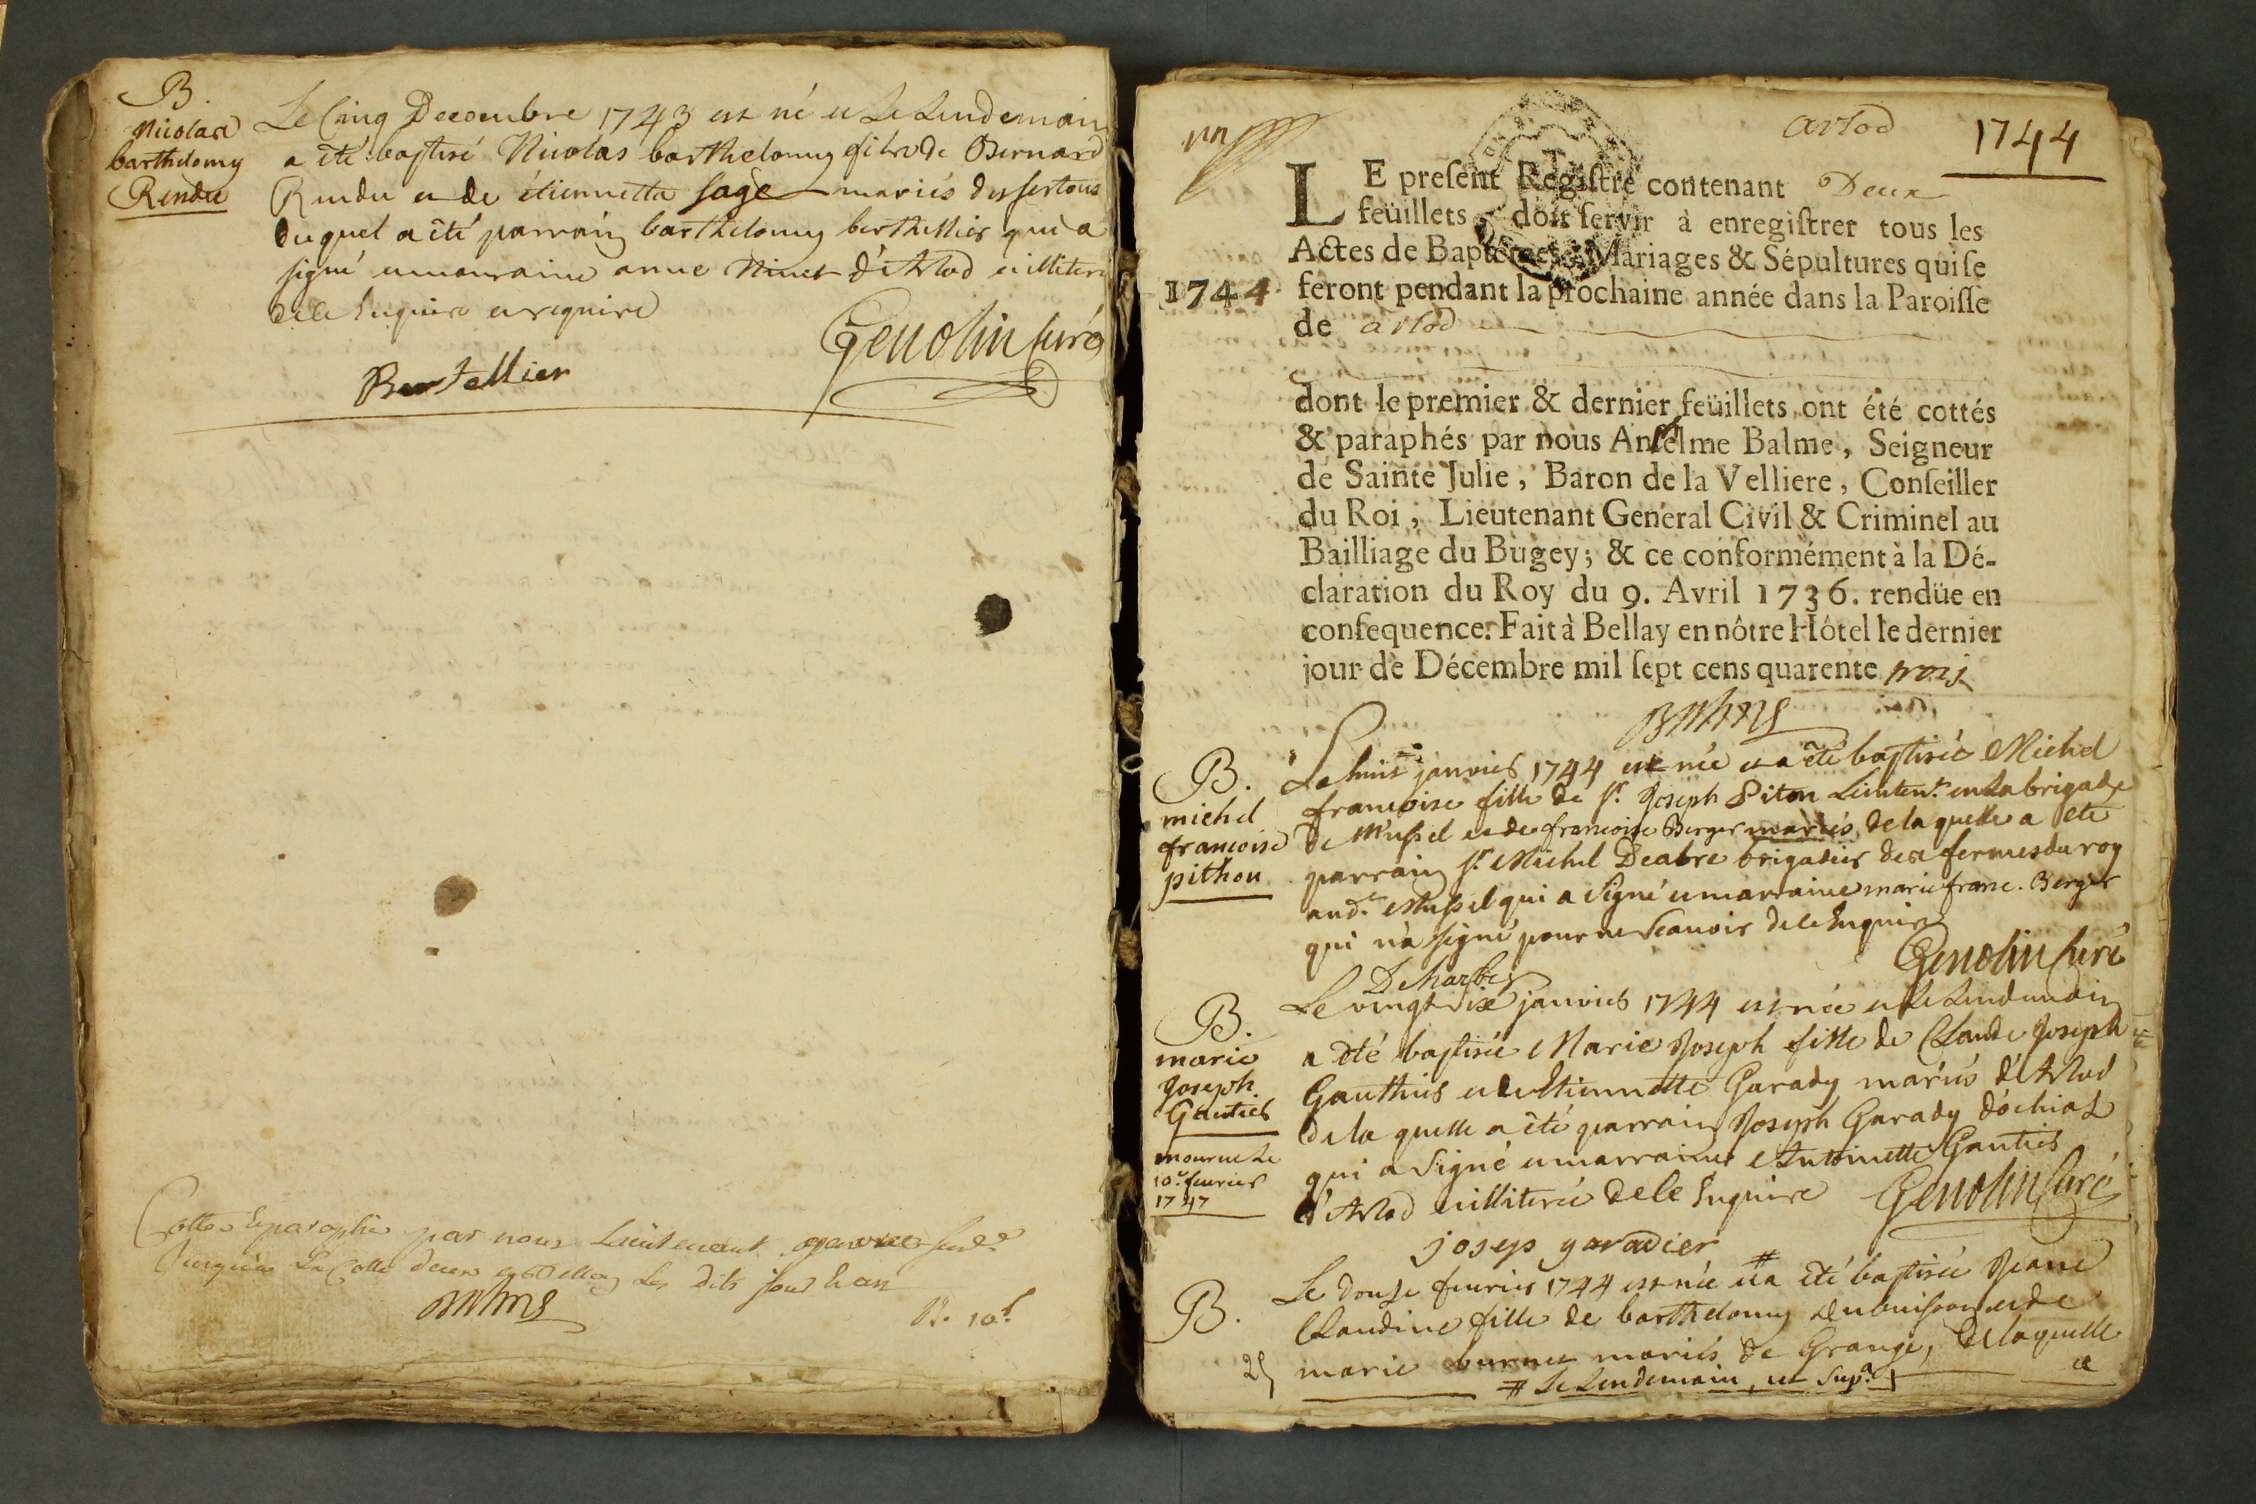 B.
Nicolas
barthelemy
Rendu
Le Cinq Decembre 1743 est né et Le Lendemain
a été baptisé Nicolas barthelemy fils de Bernard
Rendu et de étiennette sage mariés
duquel a été parrain barthelemy berthellier qui a
signé et marraine anne Ninet d'Arlod illiterée
de le Enquise et requise
Genolin Curé
Bertellier
Cotté & paraphé par nous Lieutenant
les dits jour & an
Balme
1744
arlod
LE present Registre contenant Deux
feüillets, doit servir à enregistrer tous les
Actes de Baptêmes, Mariages & Sépultures qui se
1744 feront pendant la prochaine année dans la Paroisse
de arlod
dont le premier & dernier feüillets ont été cottés
& paraphés par nous Anselme Balme, Seigneur
de Sainte Julie, Baron de la Velliere, Conseiller
du Roi, Lieutenant General Civil & Criminel au
Bailliage du Bugey; & ce conformément à la Dé-
claration du Roy du 9. Avril 1736. rendüe en
consequence. Fait à Bellay en nôtre Hôtel le dernier
jour de Décembre mil sept cens quarente trois
Balme
B.
michel
francoise
pithon
Le huit janvier 1744 est née et a été baptisée Michel
francoise fille de Sr. Joseph Piton Lieuten.t en La brigade
de Mussel et de francoise Berger mariés, de la quelle a été
parrain Sr. Michel Deabre brigadier des fermes du roy
aud.t Mussel qui a Signé et marraine marie franc. Berger
qui n'a signé pour ne Scavoir de le Enquise
Genolin Curé
B.
marie
Joseph
Gautier
mourue Le
10.e fevrier
1747
Le vingt six janvier 1744 est née et Le Lendemain
a été baptisée Marie Joseph fille de Claude Joseph
Gauthier et de Etiennette Garady mariés d'Arlod
de la quelle a été parrain Joseph Garady d'ochiaz
qui a Signé et marraine Antoinette Gautier
d'Arlod illiterée de le Enquise
Genolin Curé
joseps garadier
B.
Le douze fevrier 1744 est née # et a été baptisée Jeane
Claudine fille de barthelemy Dubuisson et de
marie burnet mariés de Grange, de laquelle
# Le Lendemain,
a